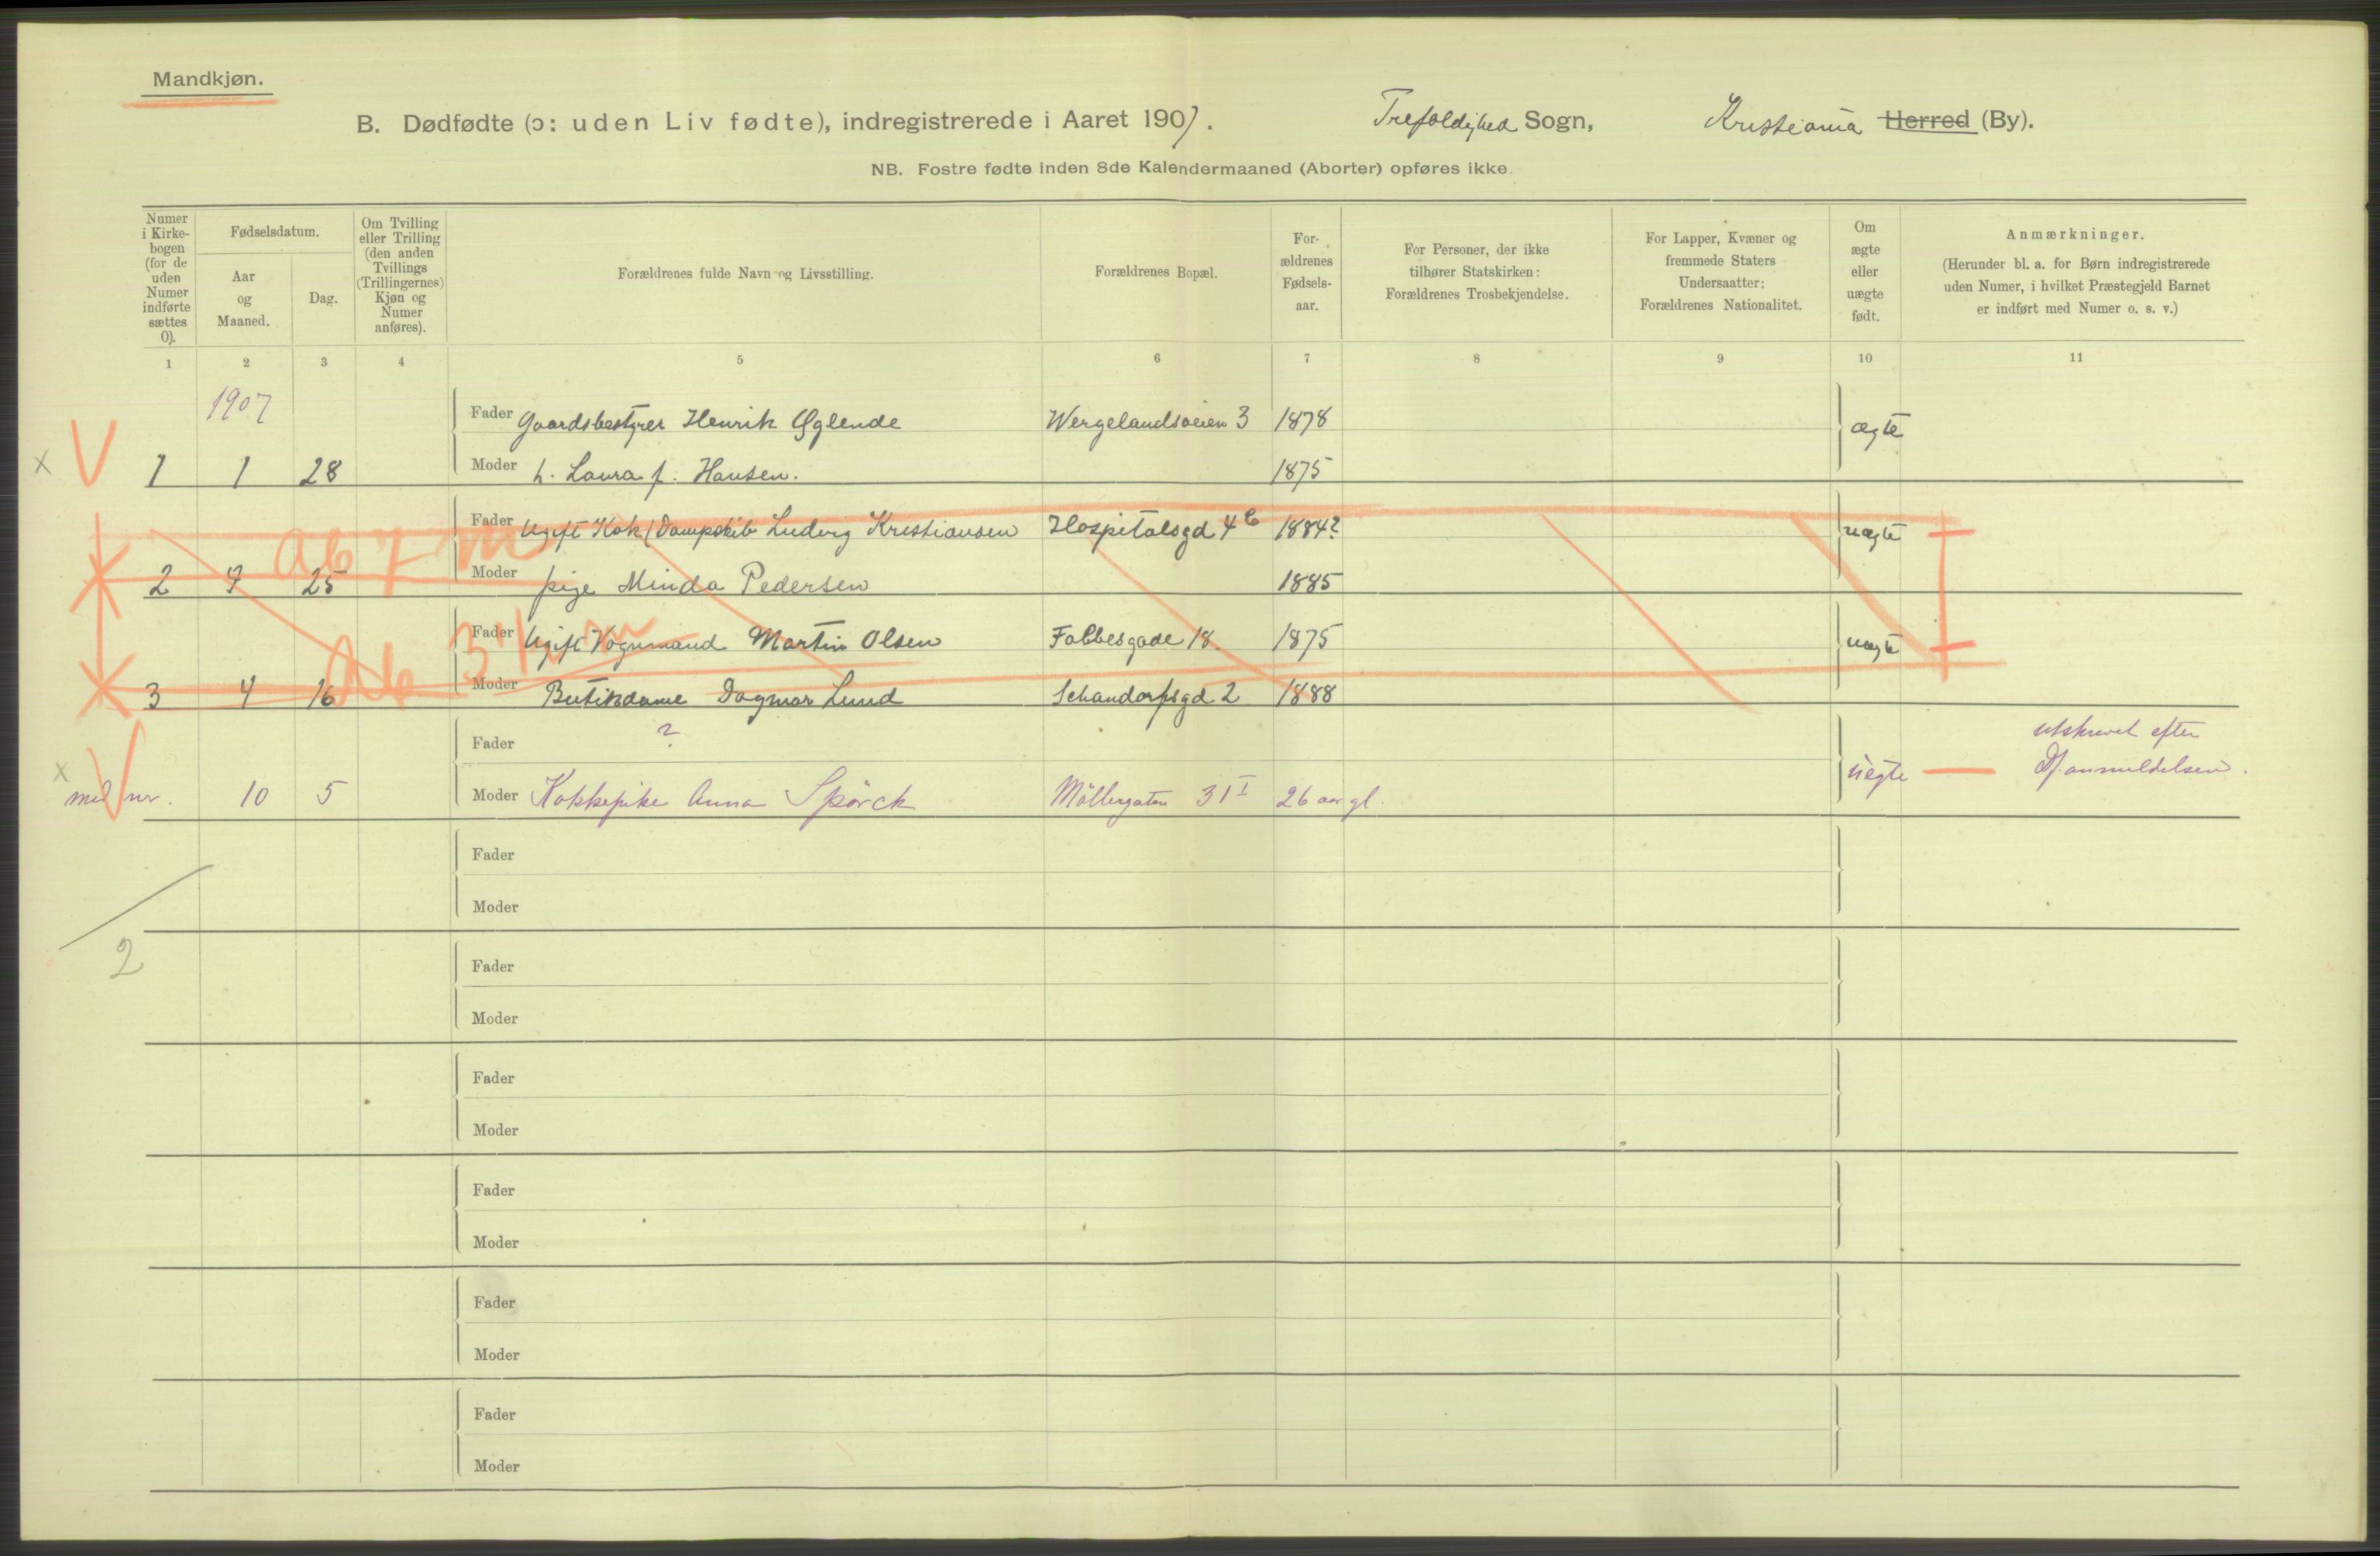 Mandkjøn.
B. Dødfødte (ɔ: uden Liv fødte), indregistrerede i Aaret 1907. Trefoldighed Sogn, Kristiania Herred (By).
NB. Fostre fødte inden 8de Kalendermaaned (Aborter) opføres ikke.
Numer i Kirkebogen (for de uden Numer indførte sættes 0).
Fødselsdatum.
Aar og Maaned.
Dag.
Om Tvilling eller Trilling (den anden Tvillings (Trillingernes) Kjøn og Numer anføres).
Forældrenes fulde Navn og Livsstilling.
Forældrenes Bopæl.
For-ældrenes Fødsels-aar.
For Personer, der ikke tilhører Statskirken: Forældrenes Trosbekjendelse.
For Lapper, Kvæner og fremmede Staters Undersaatter: Forældrenes Nationalitet.
Om ægte eller uægte født.
Anmærkninger.
(Herunder bl. a. for Børn indregistrerede uden Numer, i hvilket Præstegjeld Barnet er indført med Numer o. s. v.)
1 2 3 4 5 6 7 8 9 10 11
1907
Fader Gaardsbestyrer Henrik Øglende Wergelandsveien 3 1878 ægte
x V 1 1 28 Moder h. Laura f. Hansen. 1875
Fader Ugift Kok / Dampskib Ludvig Kristiansen Hospitalsgd 4 1884? uægte
Ab 7 m
2 25 Moder pige Minda Pedersen 1885
Fader Ugift Vognmand Martin Olsen Falbesgade 18. 1875 uægte
Ab 3 1/2 m
3 4 16 Moder Butikdame Dagmar Lund Schandorfsgd 2 1888
Fader ? utskrevet efter
x V nr. 10 5 Moder Kokkepike Anna Spørck Möllergaten 31 I 26 aar gl. uegte — Df. anmeldelsen.
Fader
Moder
2
Fader
Moder
Fader
Moder
Fader
Moder
Fader
Moder
Fader
Moder